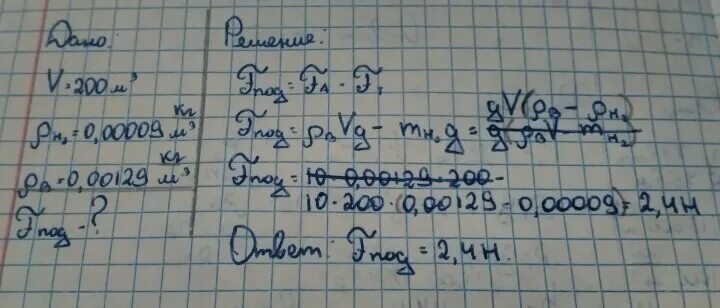 Дано:
V = 200 м³
ρH₂ = 0,00009 кг/м³
ρв = 0,00129 кг/м³
Fпод - ?
Решение:
Fпод = FA - Fт
Fпод = ρвVg - mH₂g = gV(ρв - ρH₂)
g ρв V - mH₂
Fпод = 10 · 0,00129 · 200 -
10 · 200 · (0,00129 - 0,00009) = 2,4 Н
Ответ: Fпод = 2,4 Н.